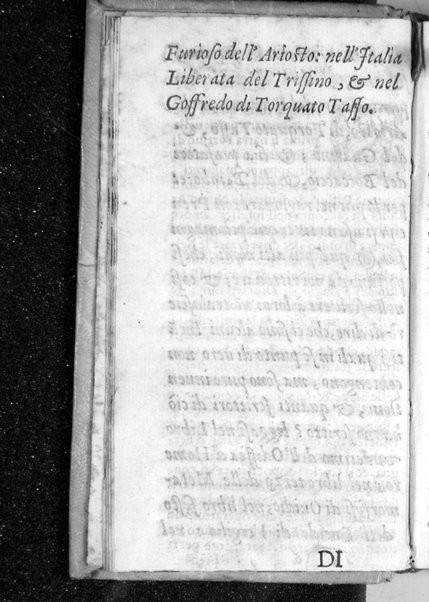 Furioso dell' Ariosto: nell'Italia
Liberata del Trissino, & nel
Goffredo di Torquato Tasso.
DI